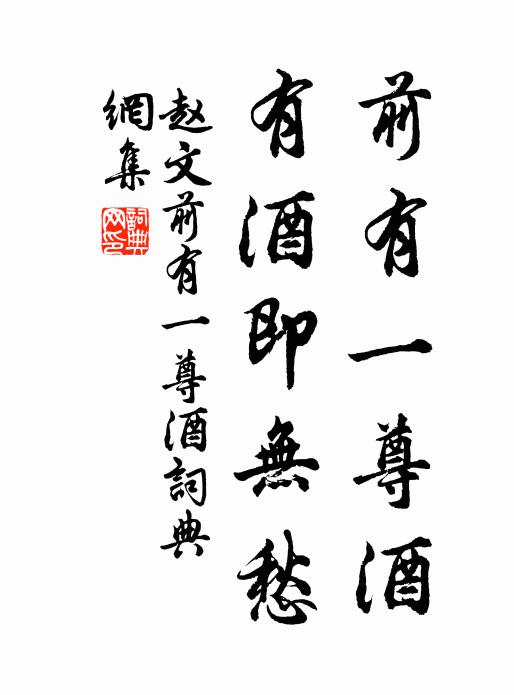 前有一尊酒
有酒即無愁
赵文前有一尊酒詞典
網集
詞典
网印